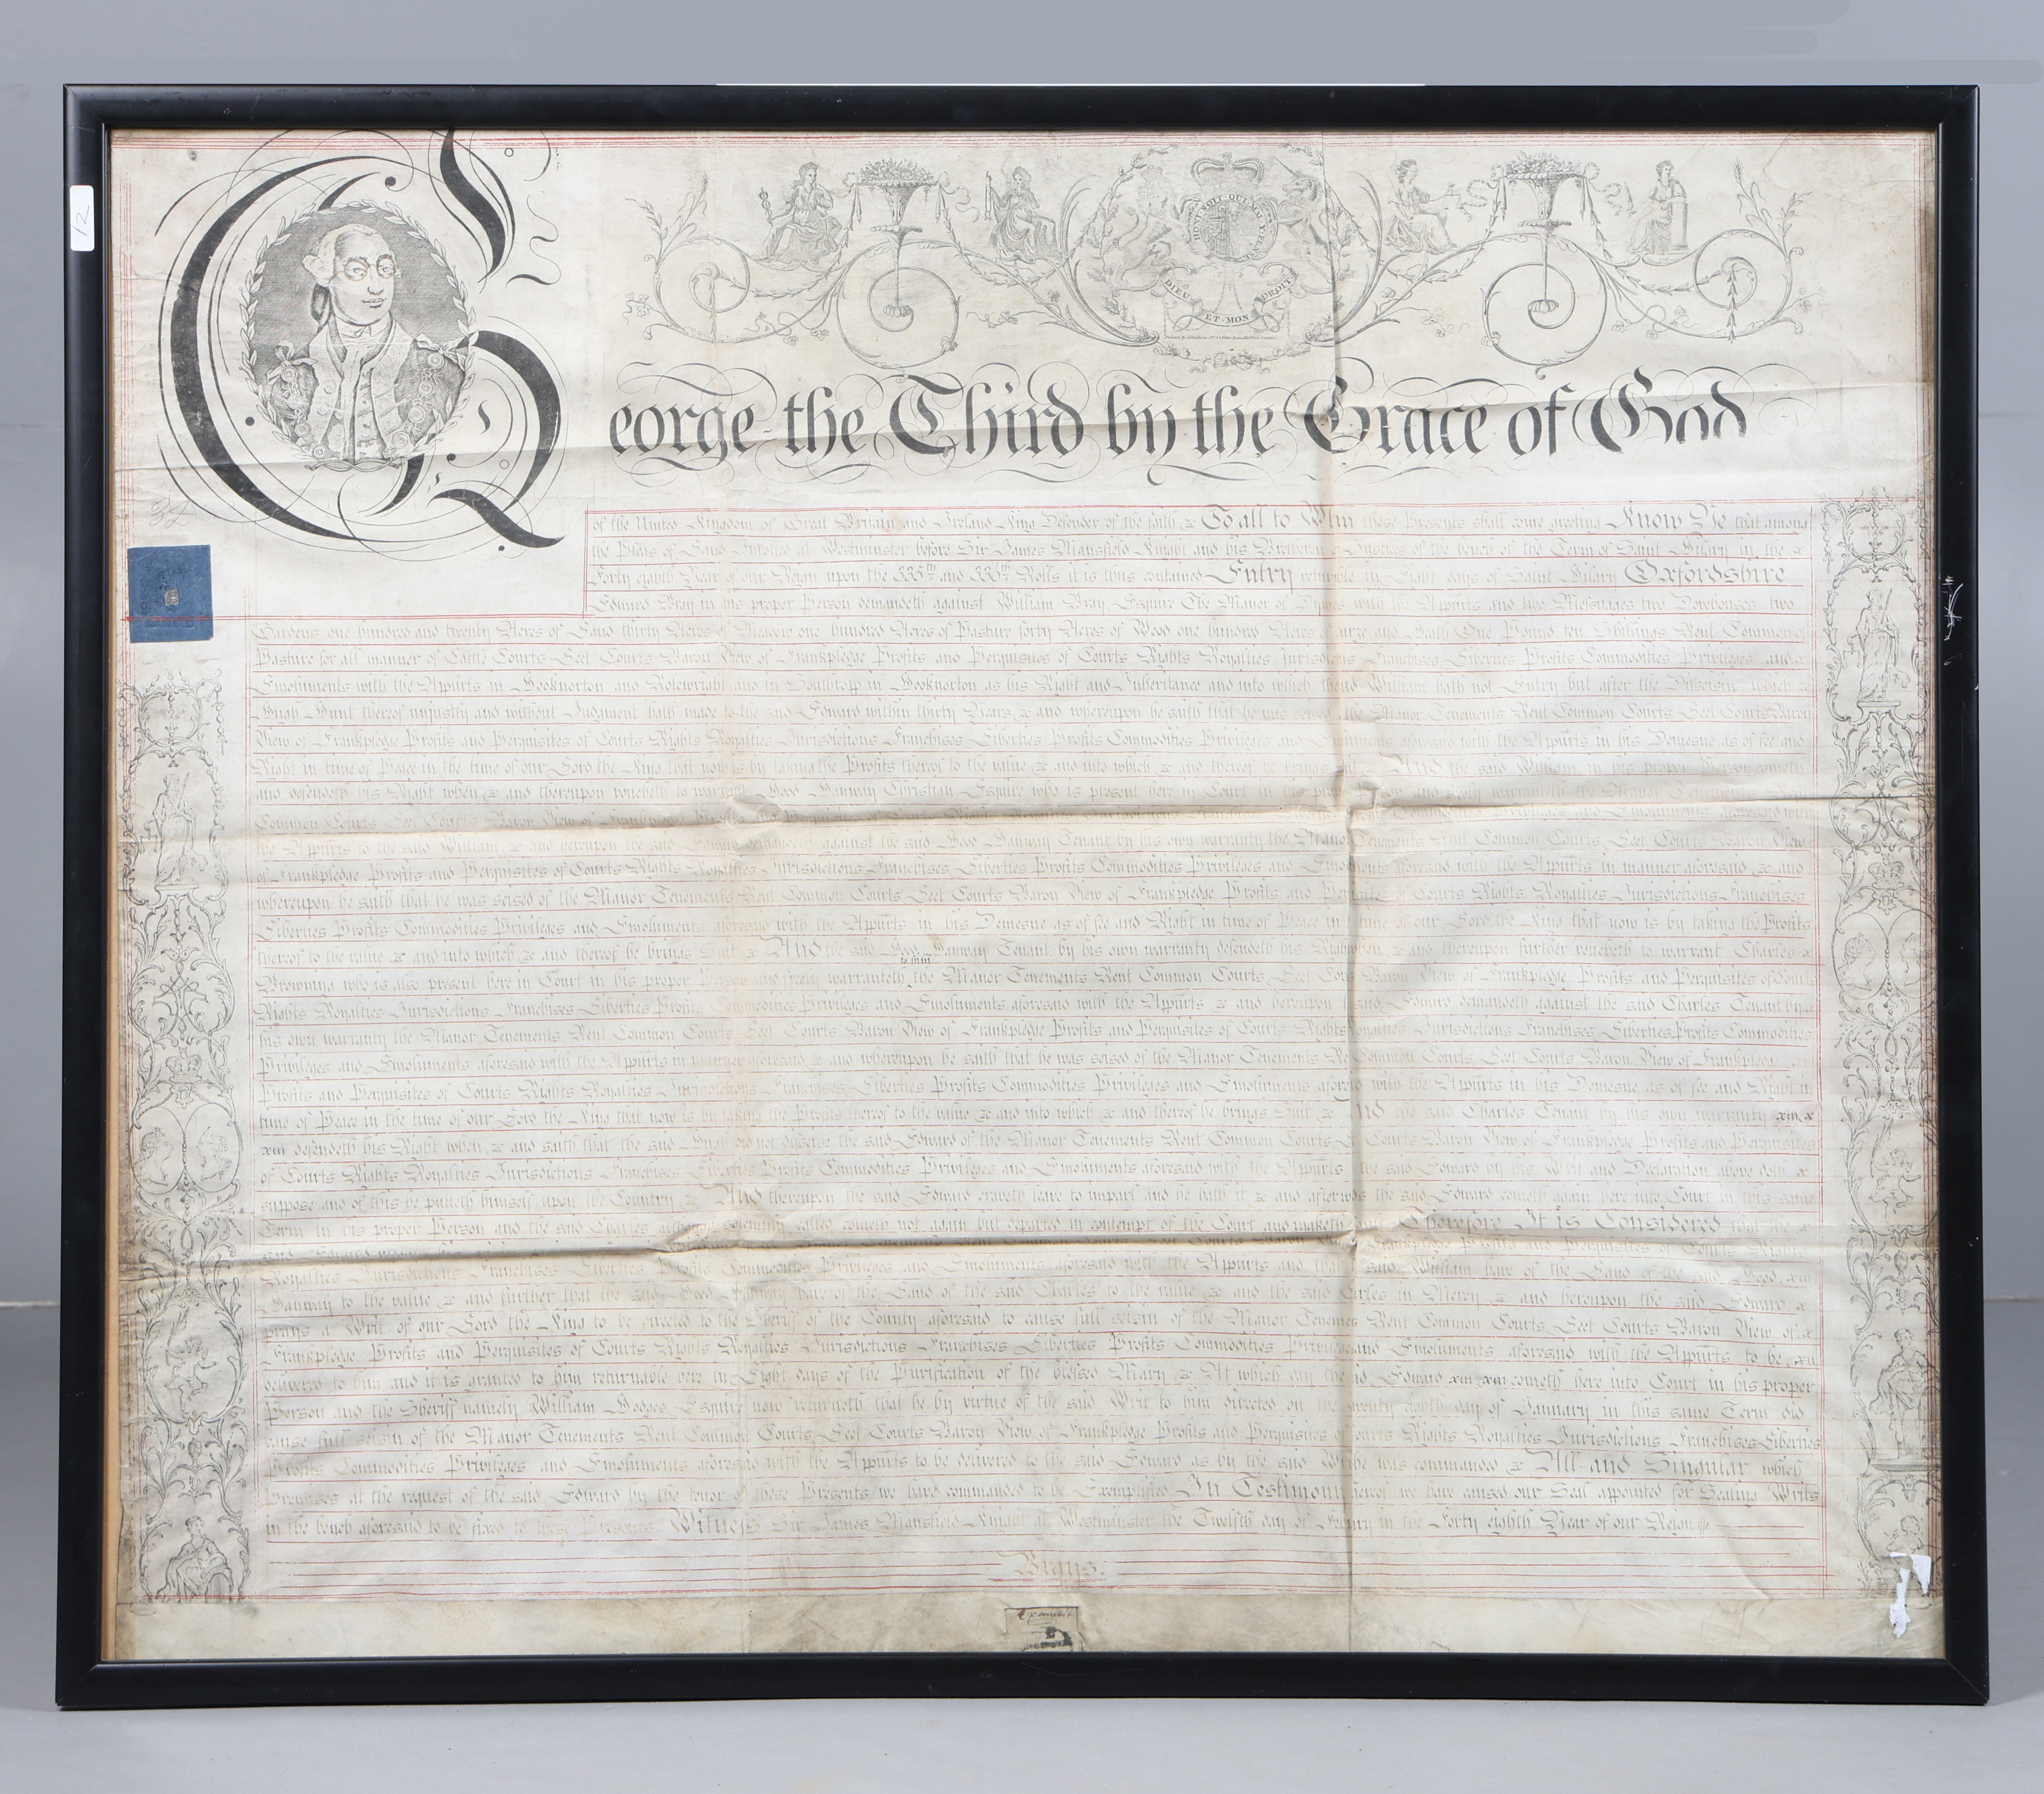 12
HONI SOIT QUI MAL Y PENSE
DIEU ET MON DROIT
George the Third by the Grace of God
32
of the United Kingdom of Great Britain and Ireland King Defender of the faith &c To all to Whom these Presents shall come greeting Know Ye that among
the Pleas of Land Inrolled at Westminster before Sir James Mansfield Knight and his Brethren Justices of the bench of the Term of Saint Hilary in the x
Forty eighth Year of our Reign upon the 335th and 336th Rolls it is thus contained Entry returnable in Eight days of Saint Hilary Oxfordshire
Edward Bray in his proper Person demandeth against William Bray Esquire The Manor of with the Appurts and two Messuages two Dovehouses two
Gardens one hundred and twenty Acres of Land thirty Acres of Meadow one hundred Acres of Pasture forty Acres of Wood one hundred Acres of Furze and Heath One Pound ten Shillings Rent Common of
Pasture for all manner of Cattle Courts Leet Courts Baron View of Frankpledge Profits and Perquisites of Courts Rights Royalties Jurisdictions Franchises Liberties Profits Commodities Privileges and x
Emoluments with the Appurts in Hooknorton and Rolewright and in Southropp in Hooknorton as his Right and Inheritance and into which the said William hath not Entry but after the Disseisin which
Hugh Hunt thereof unjustly and without Judgment hath made to the said Edward within thirty Years &c and whereupon he saith that he was seised the Manor Tenements Rent Common Courts Leet Courts Baron
View of Frankpledge Profits and Perquisites of Courts Rights Royalties Jurisdictions Franchises Liberties Profits Commodities Privileges and Emoluments aforesaid with the Appurts in his Demesne as of fee and
Right in time of Peace in the time of our Lord the King that now is by taking the Profits thereof to the value &c and into which &c and thereof he brings And the said William in his proper Person cometh
and defendeth his Right when &c and thereupon voucheth to warrant Hood Hanway Christian Esquire who is present here in Court in his and freely warranteth the Manor Tenements Rent
Common Courts Leet Courts Baron View of Frankpledge Commodities Privileges and Emoluments aforesaid with
the Appurts to the said William &c and hereupon the said Edward demandeth against the said Hood Hanway Tenant by his own warranty the Manor Tenements Rent Common Courts Leet Courts Baron View
of Frankpledge Profits and Perquisites of Courts Rights Royalties Jurisdictions Franchises Liberties Profits Commodities Privileges and Emoluments aforesaid with the Appurts in manner aforesaid &c and
whereupon he saith that he was seised of the Manor Tenements Rent Common Courts Leet Courts Baron View of Frankpledge Profits and Perquisites of Courts Rights Royalties Jurisdictions Franchises
Liberties Profits Commodities Privileges and Emoluments aforesaid with the Appurts in his Demesne as of fee and Right in time of Peace in time of our Lord the King that now is by taking the Profits
thereof to the value &c and into which &c and thereof he brings Suit &c And the said Hood Hanway Tenant by his own warranty defendeth his Right when &c and thereupon further voucheth to warrant Charles x
to him
Browning who is also present here in Court in his proper Person and freely warranteth the Manor Tenements Rent Common Courts Leet Baron View of Frankpledge Profits and Perquisites of Courts
Rights Royalties Jurisdictions Franchises Liberties Profits Commodities Privileges and Emoluments aforesaid with the Appurts &c and hereupon said Edward demandeth against the said Charles Tenant by
his own warranty the Manor Tenements Rent Common Courts Leet Courts Baron View of Frankpledge Profits and Perquisites of Courts Rights Royalties Jurisdictions Franchises Liberties Profits Commodities
Privileges and Emoluments aforesaid with the Appurts in manner aforesaid &c and whereupon he saith that he was seised of the Manor Tenements Common Courts Leet Courts Baron View of Frankpledge
Profits and Perquisites of Courts Rights Royalties Jurisdictions Franchises Liberties Profits Commodities Privileges and Emoluments with the Appurts in his Demesne as of fee and Right in
time of Peace in the time of our Lord the King that now is by taking the Profits thereof to the value &c and into which &c and thereof he brings Suit &c And the said Charles Tenant by his own warranty
defendeth his Right when &c and saith that the said Hugh did not disseise the said Edward of the Manor Tenements Rent Common Courts Courts Baron View of Frankpledge Profits and Perquisites
of Courts Rights Royalties Jurisdictions Franchises Liberties Profits Commodities Privileges and Emoluments aforesaid with the Appurts the said Edward by his Writ and Declaration above doth x
suppose and of this he putteth himself upon the Country &c And thereupon the said Edward craveth leave to imparl and he hath it &c and afterwards the said Edward cometh again here into Court in this same
Term in his proper Person and the said Charles although solemnly called cometh not again but departed in contempt of the Court and maketh Therefore It is Considered that the x
said Edward Frankpledge Profits and Perquisites of Courts Rights
Royalties Jurisdictions Franchises Liberties Profits Commodities Privileges and Emoluments aforesaid with the Appurts and that said William have of the Land of the said Hood
Hanway to the value &c and further that the said Hood Hanway have of the Land of the said Charles to the value &c and the said in Mercy &c and hereupon the said Edward x
prays a Writ of our Lord the King to be directed to the Sheriff of the County aforesaid to cause full seisin of the Manor Tenements Rent Common Courts Leet Courts Baron View of x
Frankpledge Profits and Perquisites of Courts Rights Royalties Jurisdictions Franchises Liberties Profits Commodities Privileges and Emoluments aforesaid with the Appurts to be
delivered to him and it is granted to him returnable here in Eight days of the Purification of the blessed Mary &c At which day Edward cometh here into Court in his proper
Person and the Sheriff namely William Hodges Esquire now returneth that he by virtue of the said Writ to him directed on the twenty eighth day of January in this same Term did
cause full seisin of the Manor Tenements Rent Common Courts Leet Courts Baron View of Frankpledge Profits and Perquisites of Courts Rights Royalties Jurisdictions Franchises Liberties
Profits Commodities Privileges and Emoluments aforesaid with the Appurts to be delivered to the said Edward as by the said Writ he was commanded &c All and Singular which
Premises at the request of the said Edward by the tenor of these Presents we have commanded to be Exemplified In Testimony whereof we have caused our Seal appointed for Sealing Writs
in the bench aforesaid to be fixed to these Presents Witness Sir James Mansfield Knight at Westminster the Twelfth day of in the Forty eighth Year of our Reign